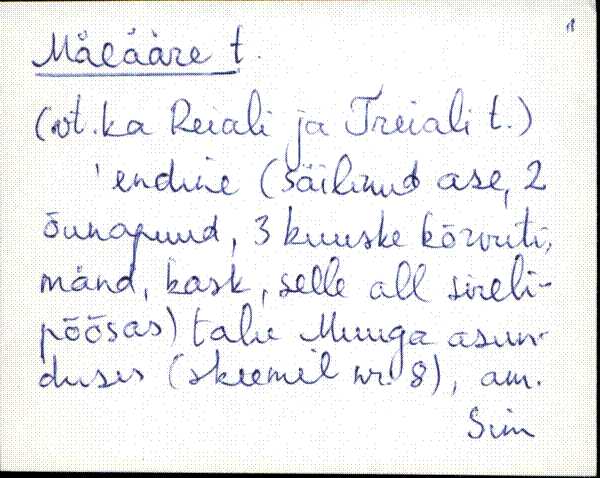 1
Mäeääre t.
(vt. ka Reiali ja Treiali t.)
'endine (säilinud ase, 2
õunapuud, 3 kuuske kõrvuti,
mänd, kask, selle all sireli-
põõsas) talu Muuga asun-
duses (skeemil nr. 8), am.
Sim